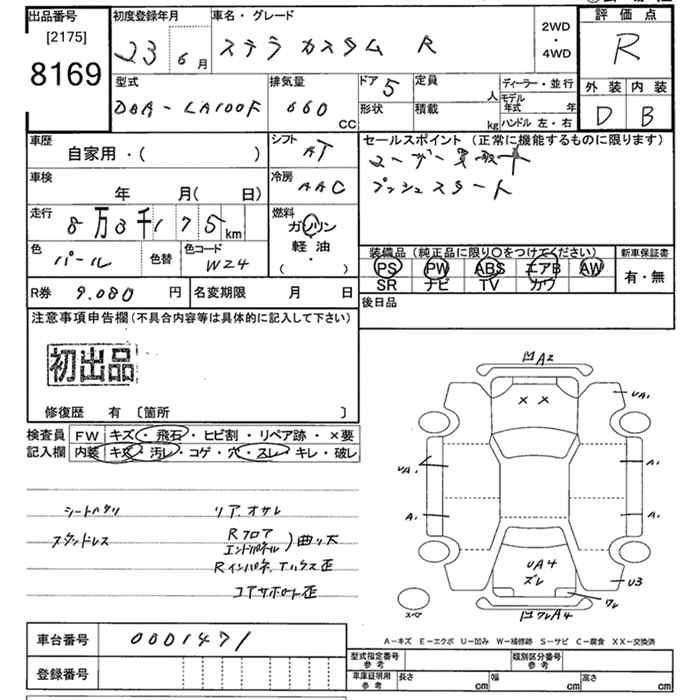 出品番号
[2175]
8169
初度登録年月
23 6月
車名・グレード
ステラ カスタム R
2WD
・
4WD
評価点
R
外装 内装
D B
型式
DBA-LA100F
排気量
660 CC
ドア 5
形状
定員 人
積載 kg
ディーラー・並行
モデル年式 年
ハンドル 左・右
車歴
自家用・( )
シフト
AT
セールスポイント (正常に機能するものに限ります)
ユーザー買取车
プッシュスタート
車検
年 月( 日)
冷房
AAC
走行
8万3千175km
燃料
ガソリン
軽油
( ・ )
色
パール
色替
色コード
W24
装備品(純正品に限り○をつけてください)
PS PW ABS エアB AW
SR ナビ TV カワ
新車保証書
有・無
R券 9.080 円
名変期限 月 日
後日品
注意事項申告欄(不具合内容等は具体的に記入して下さい)
初出品
修復歴 有 〔箇所 〕
検査員 FW キズ・飛石・ヒビ割・リペア跡・×要
記入欄 内装 キズ・汚レ・コゲ・穴・スレ・キレ・破レ
シートハタリ リア.オサレ
スタッドレス Rフロア
エンドパネル )曲リ大
Rインパネ.Tハウス歪
コアサポート歪
A2
× ×
UA1
UA1
A1
A1
A1
UA4
ズレ
U3
ワレ
ワレA4
スペア
A-キズ E-エクボ U-凹み W-補修跡 S-サビ C-腐食 XX-交換済
車台番号 0001471
登録番号
型式指定番号 参考
類別区分番号 参考
車庫証明用 参考 長さ cm 幅 cm 高さ cm